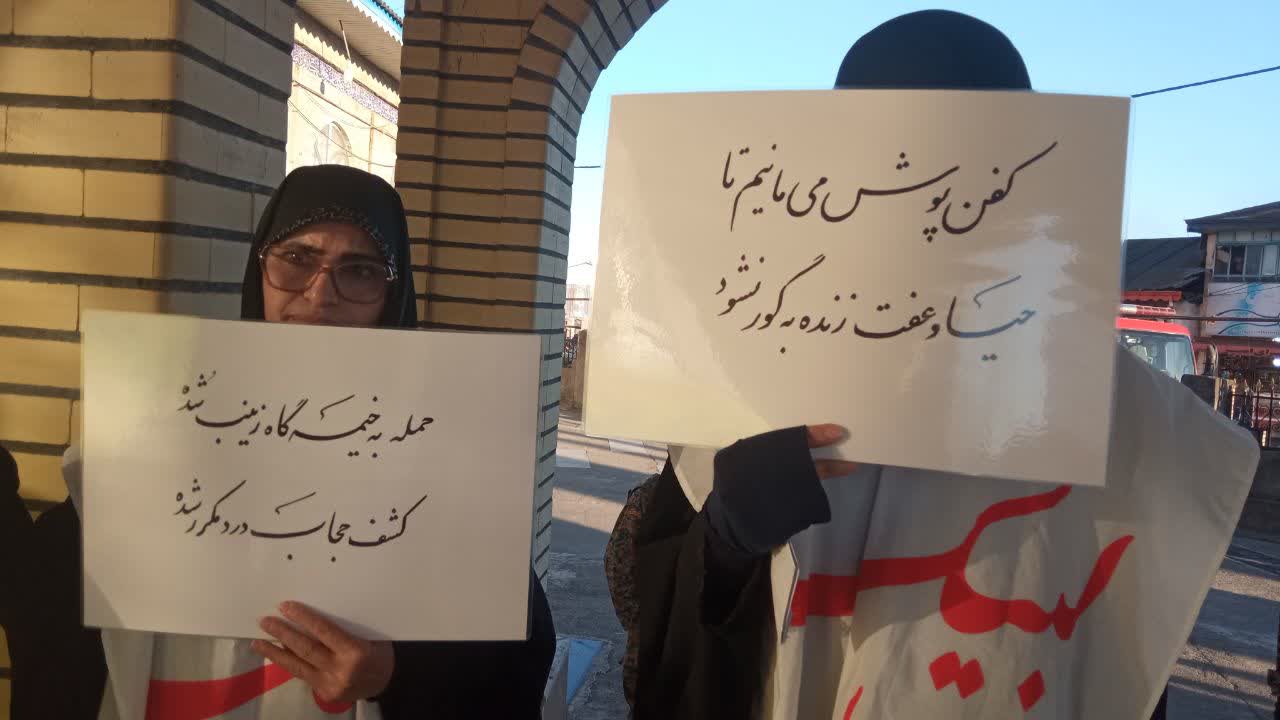 کفن پوش می مانیم تا
حیا و عفت زنده به گور نشود
حمله به خیمه گاه زینب شده
کشف حجاب درد مکرر شده
لبیک